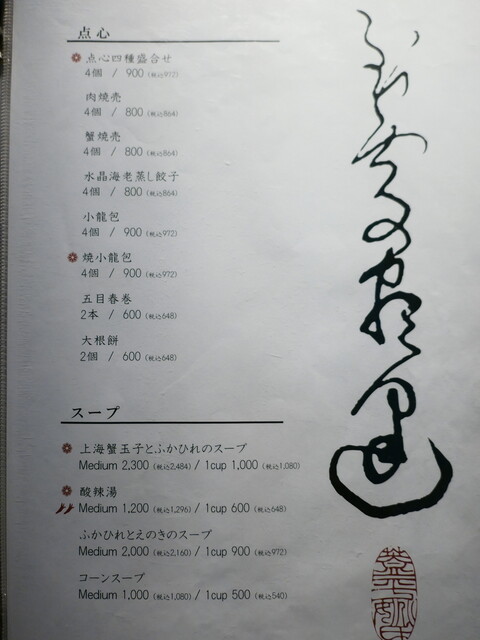 点心
点心四種盛合せ
4個 / 900 (税込972)
肉焼売
4個 / 800 (税込864)
蟹焼売
4個 / 800 (税込864)
水晶海老蒸し餃子
4個 / 800 (税込864)
小龍包
4個 / 900 (税込972)
焼小龍包
4個 / 900 (税込972)
五目春巻
2本 / 600 (税込648)
大根餅
2個 / 600 (税込648)
スープ
上海蟹玉子とふかひれのスープ
Medium 2,300 (税込2,484) / 1cup 1,000 (税込1,080)
酸辣湯
Medium 1,200 (税込1,296) / 1cup 600 (税込648)
ふかひれとえのきのスープ
Medium 2,000 (税込2,160) / 1cup 900 (税込972)
コーンスープ
Medium 1,000 (税込1,080) / 1cup 500 (税込540)